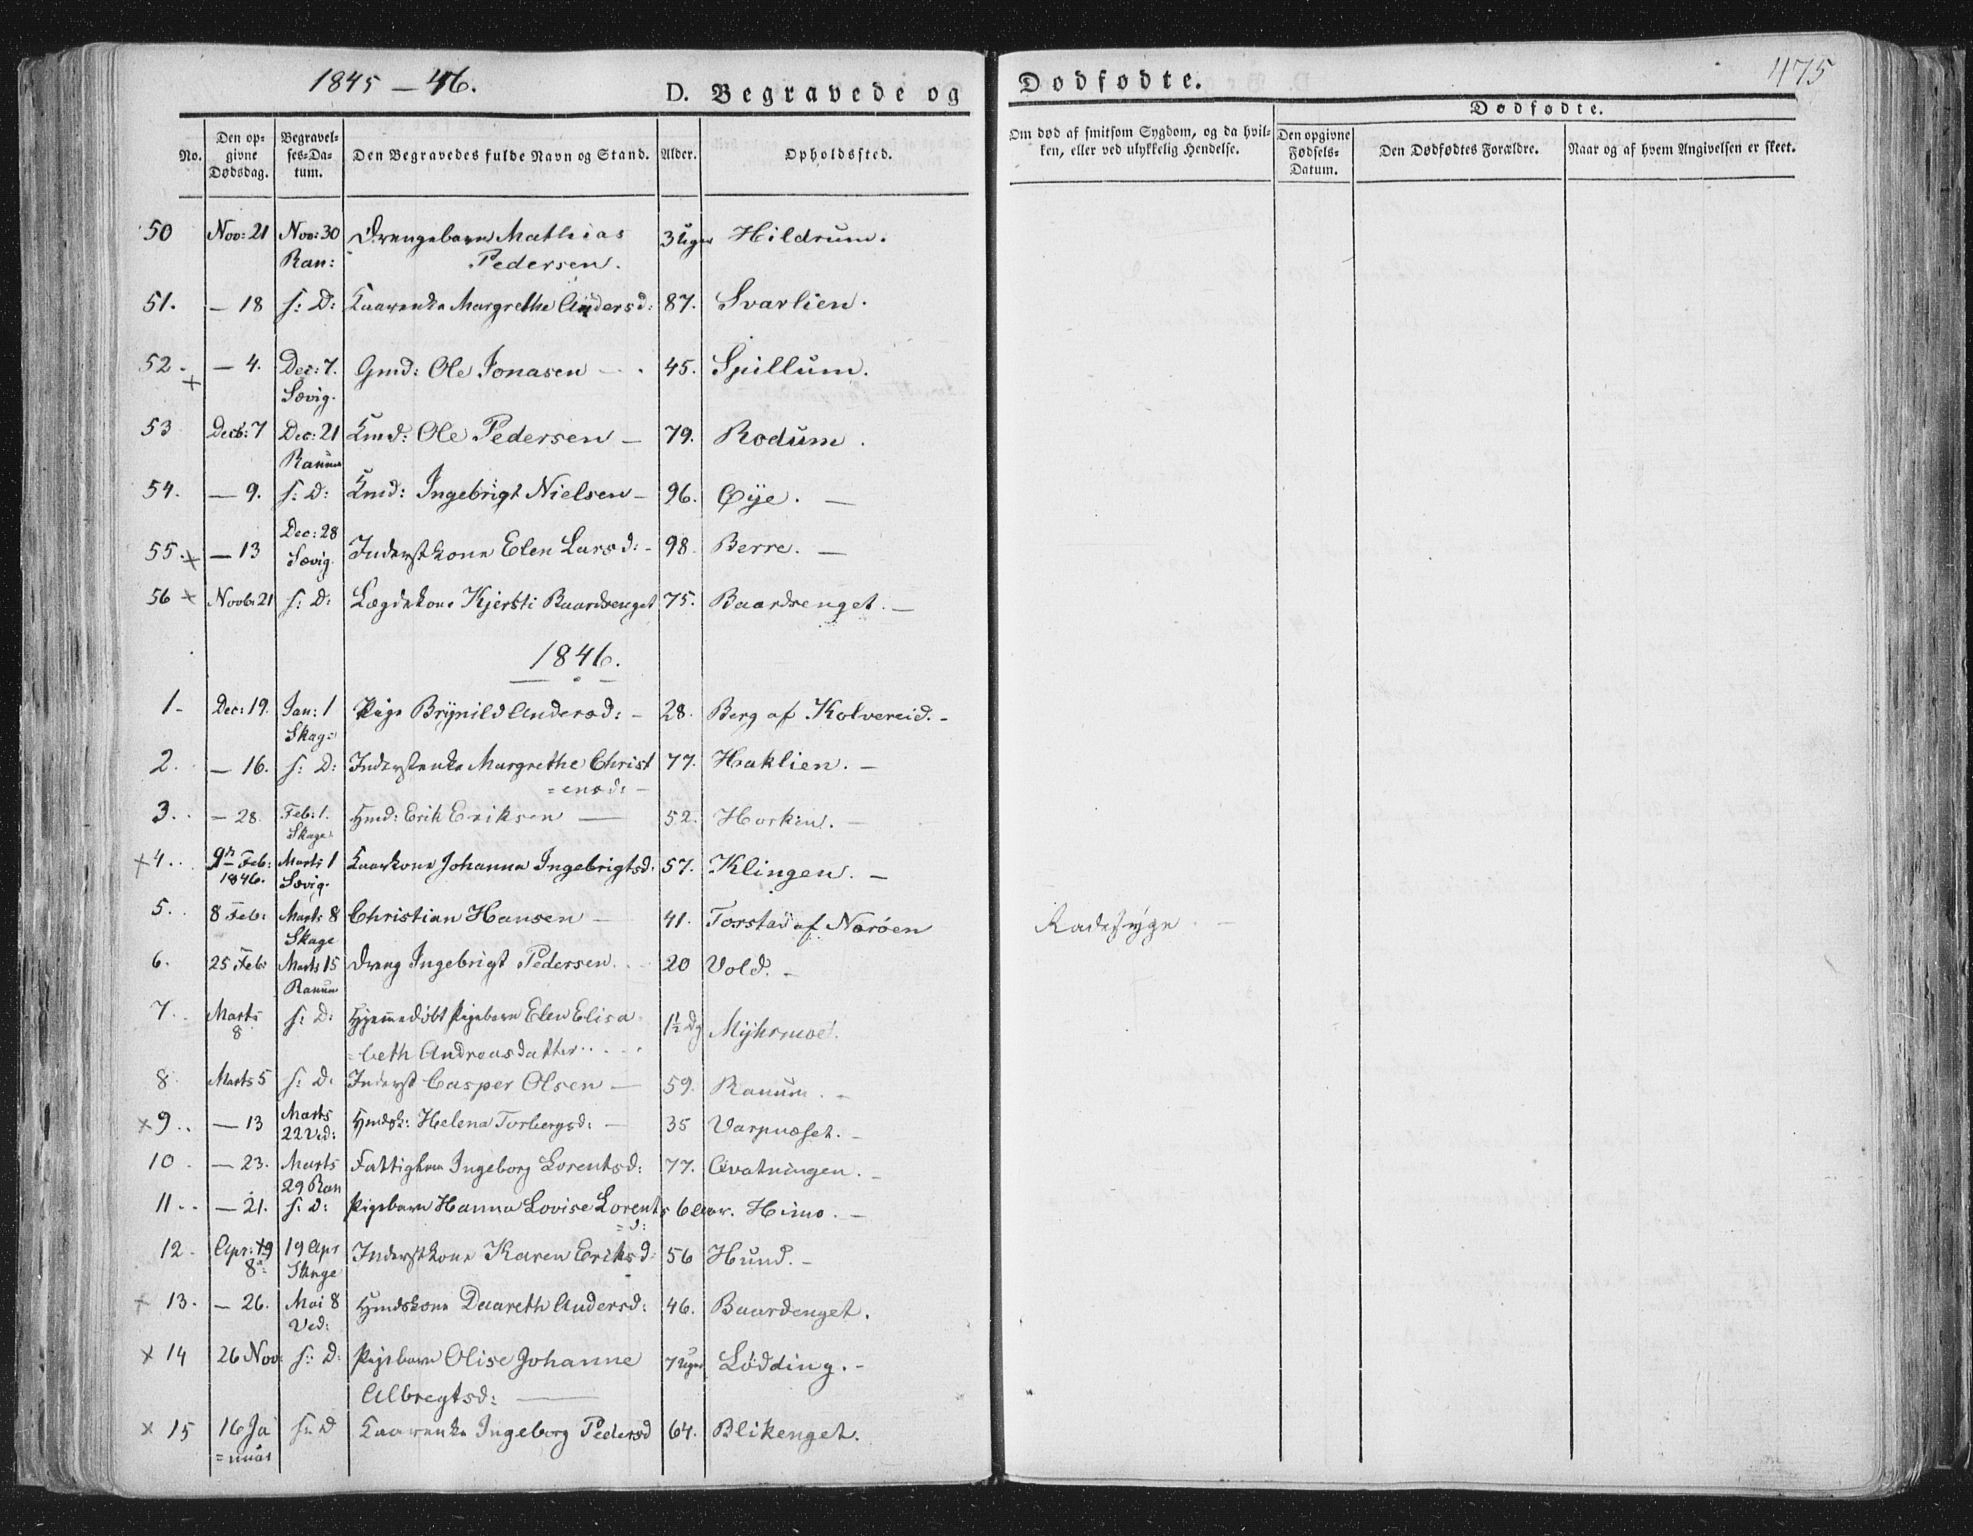 1845 – 46.
D. Begravede og
Dødfødte.
475
No.
Den op-
givne
Dødsdag.
Begravel-
ses-Da-
tum.
Den Begravedes fulde Navn og Stand.
Alder.
Opholdssted.
Om død af smitsom Sygdom, og da hvil-
ken, eller ved ulykkelig Hendelse.
Dødfødte.
Den opgivne
Fødsels-
Datum.
Den Dødfødtes Forældre.
Naar og af hvem Angivelsen er skeet.
50 Nov: 21 Nov: 30 Drengebarn Mathias 3 Uger Hildrum.
Ran: Pedersen.
51. – 18 s: D: Kaarenke Margrethe Andersd: 87. Svarlien.
52. – 4. Dec: 7. Gmd: Ole Jonasen – 45. Spillum.
+ Sævig.
53 Decb: 7 Dec: 21 Kmd: Ole Pedersen – 79. Rodum.
Ranum
54. – 9. s: D: Kmd: Ingebrigt Nielsen – 96. Øye. –
Dec: 28
55. + – 13 Sævig. Inderstkone Elen Larsd: – 98. Berre. –
56 + Novb: 21 s: D: Lægdskone Kjersti Baardsenget 75. Baardsenget. –
1846.
1 - Dec: 19. Jan: 1 Pige Brynild Andersd: – 28. Berg af Kolvereid. –
Skage
2. – 16. s: D: Inderstenke Margrethe Christ 77. Haklien. –
= ensd: –
3. – 28. Feb: 1. Hmd: Erik Eriksen – 52. Horken. –
Skage
+ 4. 9n Feb: Marts 1 Kaarkone Johanna Ingebrigtsd. 57. Klingen. –
1846. Sævig.
5. 8 Feb: Marts 8 Christian Hansen – 41. Torstad af Nærøen Radesyge. –
Skage
6. 25 Feb: Marts 15 Dreng Ingebrigt Pedersen. 20 Vold. –
Ranum
7. Marts s: D: Hjemmedøbt Pigebarn Elen Elisa 1½ Dg Myhrmoe.
8
= beth Andreasdatter
8. Marts 5 s: D: Inderst Casper Olsen – 59. Ranum. –
x 9. – 13 Marts Hmdsk: Helena Torbergsd: – 35 Varpnæset. –
22 Ved:
10. – 23. Marts Fattigkone Ingeborg Lorentsd: 77. Qvatningen. –
29 Ran
11. – 21. s: D: Pigebarn Hanna Lovise Lorents 6 Aar. Himo. –
= d:
12. Apr: 19 Apr Inderstkone Karen Eriksd: 56 Hund. –
8de Skage
+ 13. – 26. Mai 8 Hmdskone Daareth Andersd: 46. Baardenget.
Ved:
x 14 26 Nov: s: D: Pigebarn Olise Johanne 7 Uger Lødding. –
Albregtsd: –
x 15 16 Ja s: D Kaarenke Ingeborg Pedersd 64. Blikenget.
= nuar